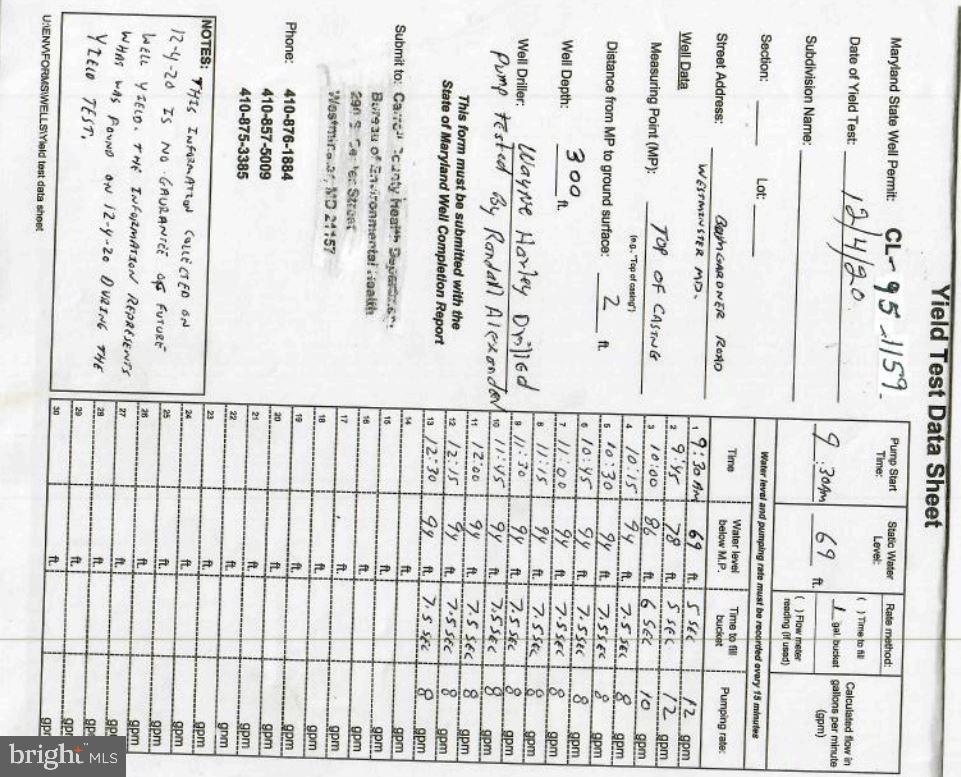 Yield Test Data Sheet
Maryland State Well Permit: CL-95-1159
Date of Yield Test: 12/4/20
Subdivision Name:
Section: Lot:
Street Address: Baumgardner Road
Westminster MD.
Well Data
Measuring Point (MP): TOP OF CASING
(e.g., "Top of casing")
Distance from MP to ground surface: 2 ft.
Well Depth: 300 ft.
Well Driller: Wayne Harley Drilled
Pump tested By Randall Alexander
This form must be submitted with the
State of Maryland Well Completion Report
Submit to: Carroll County Health Department
Bureau of Environmental Health
290 S. Center Street
Westminster, MD 21157
Phone: 410-876-1884
410-857-5009
410-875-3385
NOTES: THIS INFORMATION COLLECTED ON
12-4-20 IS NO GAURANTEE OF FUTURE
WELL YIELD. THE INFORMATION REPRESENTS
WHAT WAS FOUND ON 12-4-20 DURING THE
YIELD TEST.
U:\ENV\FORMS\WELLS\Yield test data sheet
Pump Start Time: 9:30AM
Static Water Level: 69 ft.
Rate method:
( ) Time to fill
1 gal. bucket
( ) Flow meter
reading (if used)
Calculated flow in
gallons per minute
(gpm)
Water level and pumping rate must be recorded every 15 minutes
Time Water level below M.P. Time to fill bucket Pumping rate:
1 9:30AM 69 ft. 5 SEC 12 gpm
2 9:45 78 ft. 5 SEC 12 gpm
3 10:00 86 ft. 6 SEC 10 gpm
4 10:15 94 ft. 7.5 SEC 8 gpm
5 10:30 94 ft. 7.5 SEC 8 gpm
6 10:45 94 ft. 7.5 SEC 8 gpm
7 11:00 94 ft. 7.5 SEC 8 gpm
8 11:15 94 ft. 7.5 SEC 8 gpm
9 11:30 94 ft. 7.5 SEC 8 gpm
10 11:45 94 ft. 7.5 SEC 8 gpm
11 12:00 94 ft. 7.5 SEC 8 gpm
12 12:15 94 ft. 7.5 SEC 8 gpm
13 12:30 94 ft. 7.5 SEC 8 gpm
14 ft. gpm
15 ft. gpm
16 ft. gpm
17 ft. gpm
18 ft. gpm
19 ft. gpm
20 ft. gpm
21 ft. gpm
22 ft. gpm
23 ft. gpm
24 ft. gpm
25 ft. gpm
26 ft. gpm
27 ft. gpm
28 ft. gpm
29 ft. gpm
30 ft. gpm
bright MLS